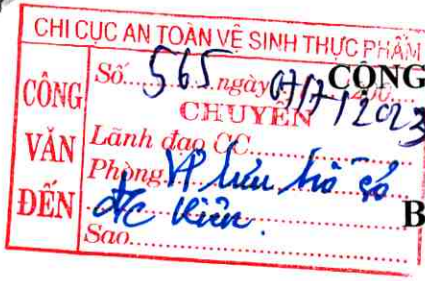 CHI CỤC AN TOÀN VỆ SINH THỰC PHẨM
CÔNG VĂN ĐẾN
Số 565 ngày 07/7/2023
CỘNG
CHUYỂN
Lãnh đạo CC
Phòng VP lưu hồ sơ
đ/c Kiên.
B
Sao